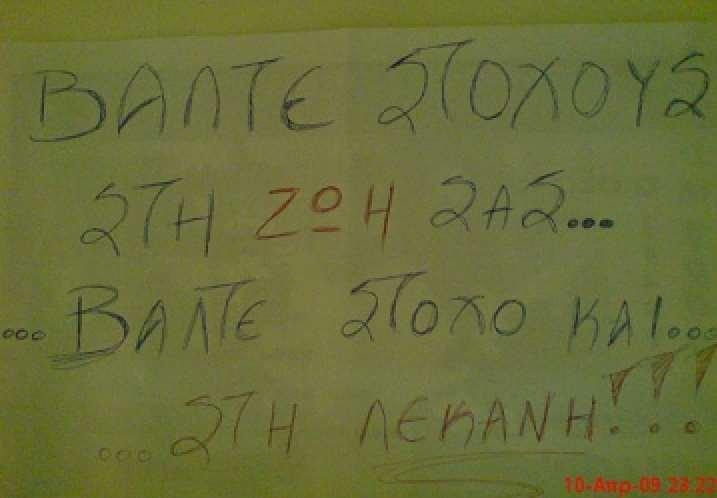 ΒΑΛΤΕ ΣΤΟΧΟΥΣ
ΣΤΗ ΖΩΗ ΣΑΣ...
...ΒΑΛΤΕ ΣΤΟΧΟ ΚΑΙ...
...ΣΤΗ ΛΕΚΑΝΗ!!!
10-Απρ-09 23:22